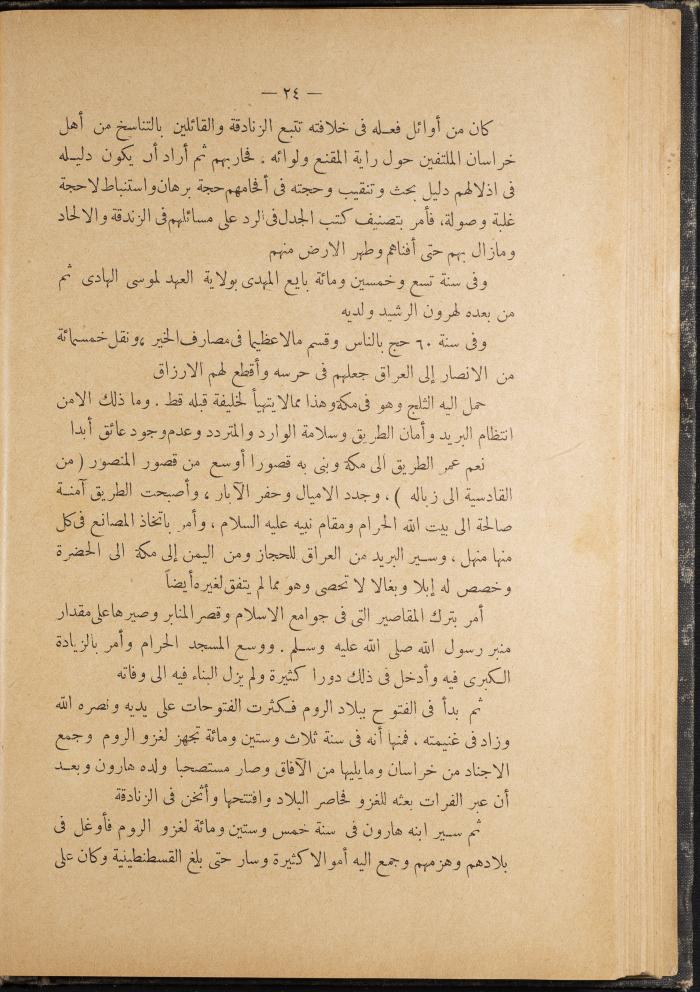 — ٢٤ —
كان من أوائل فعـله فى خلافته تتبع الزنادقة والقائلين بالتناسخ من أهل
خراسان الملتفين حول راية المقنع ولوائه . فحاربهم ثم أراد أن يكون دليـله
فى اذلالهم دليل بحث وتنقيب وحجته فى أفحامهم حجة برهان واستنباط لا حجة
غلبة وصولة، فأمر بتصنيف كتب الجدل فى الرد على مسائلهم فى الزندقة والالحاد
ومازال بهم حتى أفناهم وطهر الارض منهم
وفى سنة تسع وخمسين ومائة بايع المهدى بولاية العهد لموسى الهادى ثم
من بعده لهرون الرشيد ولديه
وفى سنة ٦٠ حج بالناس وقسم مالا عظيما فى مصارف الخير ،ونقل خمسمائة
من الانصار إلى العراق جعلهم فى حرسه وأقطع لهم الارزاق
حمل اليه الثلج وهو فى مكة وهذا مما لا يتهيأ لخليفة قبله قط . وما ذلك الامن
انتظام البريد وأمان الطريق وسلامة الوارد والمتردد وعدم وجود عائق أبدا
نعم عمر الطريق الى مكة وبنى به قصورا أوسع من قصور المنصور ( من
القادسية الى زباله ) ، وجدد الاميال وحفر الآبار ، وأصبحت الطريق آمنـة
صالحة الى بيت الله الحرام ومقام نبيه عليه السلام ، وأمر باتخاذ المصانع فى كل
منها منهل ، وسـير البريد من العراق للحجاز ومن اليمن إلى مكة الى الحضرة
وخصص له إبلا وبغالا لا تحصى وهو مما لم يتفق لغيره أيضاً
أمر بترك المقاصير التى فى جوامع الاسلام وقصر المنابر وصيرها على مقدار
منبر رسول الله صلى الله عليه وسـلم . ووسع المسجد الحرام وأمر بالزيادة
الـكبرى فيه وأدخل فى ذلك دورا كثيرة ولم يزل البناء فيه الى وفاته
ثم بدأ فى الفتوح ببلاد الروم فـكثرت الفتوحات على يديه ونصره الله
وزاد فى غنيمته ، فمنها أنه فى سنة ثلاث وستين ومائة تجهز لغزو الروم وجمع
الاجناد من خراسان ومايليها من الآفاق وصار مستصحبا ولده هارون وبعـد
أن عبر الفرات بعثه للغزو فحاصر البلاد وافتتحها وأثخن فى الزنادقة
ثم سـير ابنه هارون فى سنة خمس وستين ومائة لغزو الروم فأوغل فى
بلادهم وهزمهم وجمع اليه أموالا كثيرة وسار حتى بلغ القسطنطينية وكان على